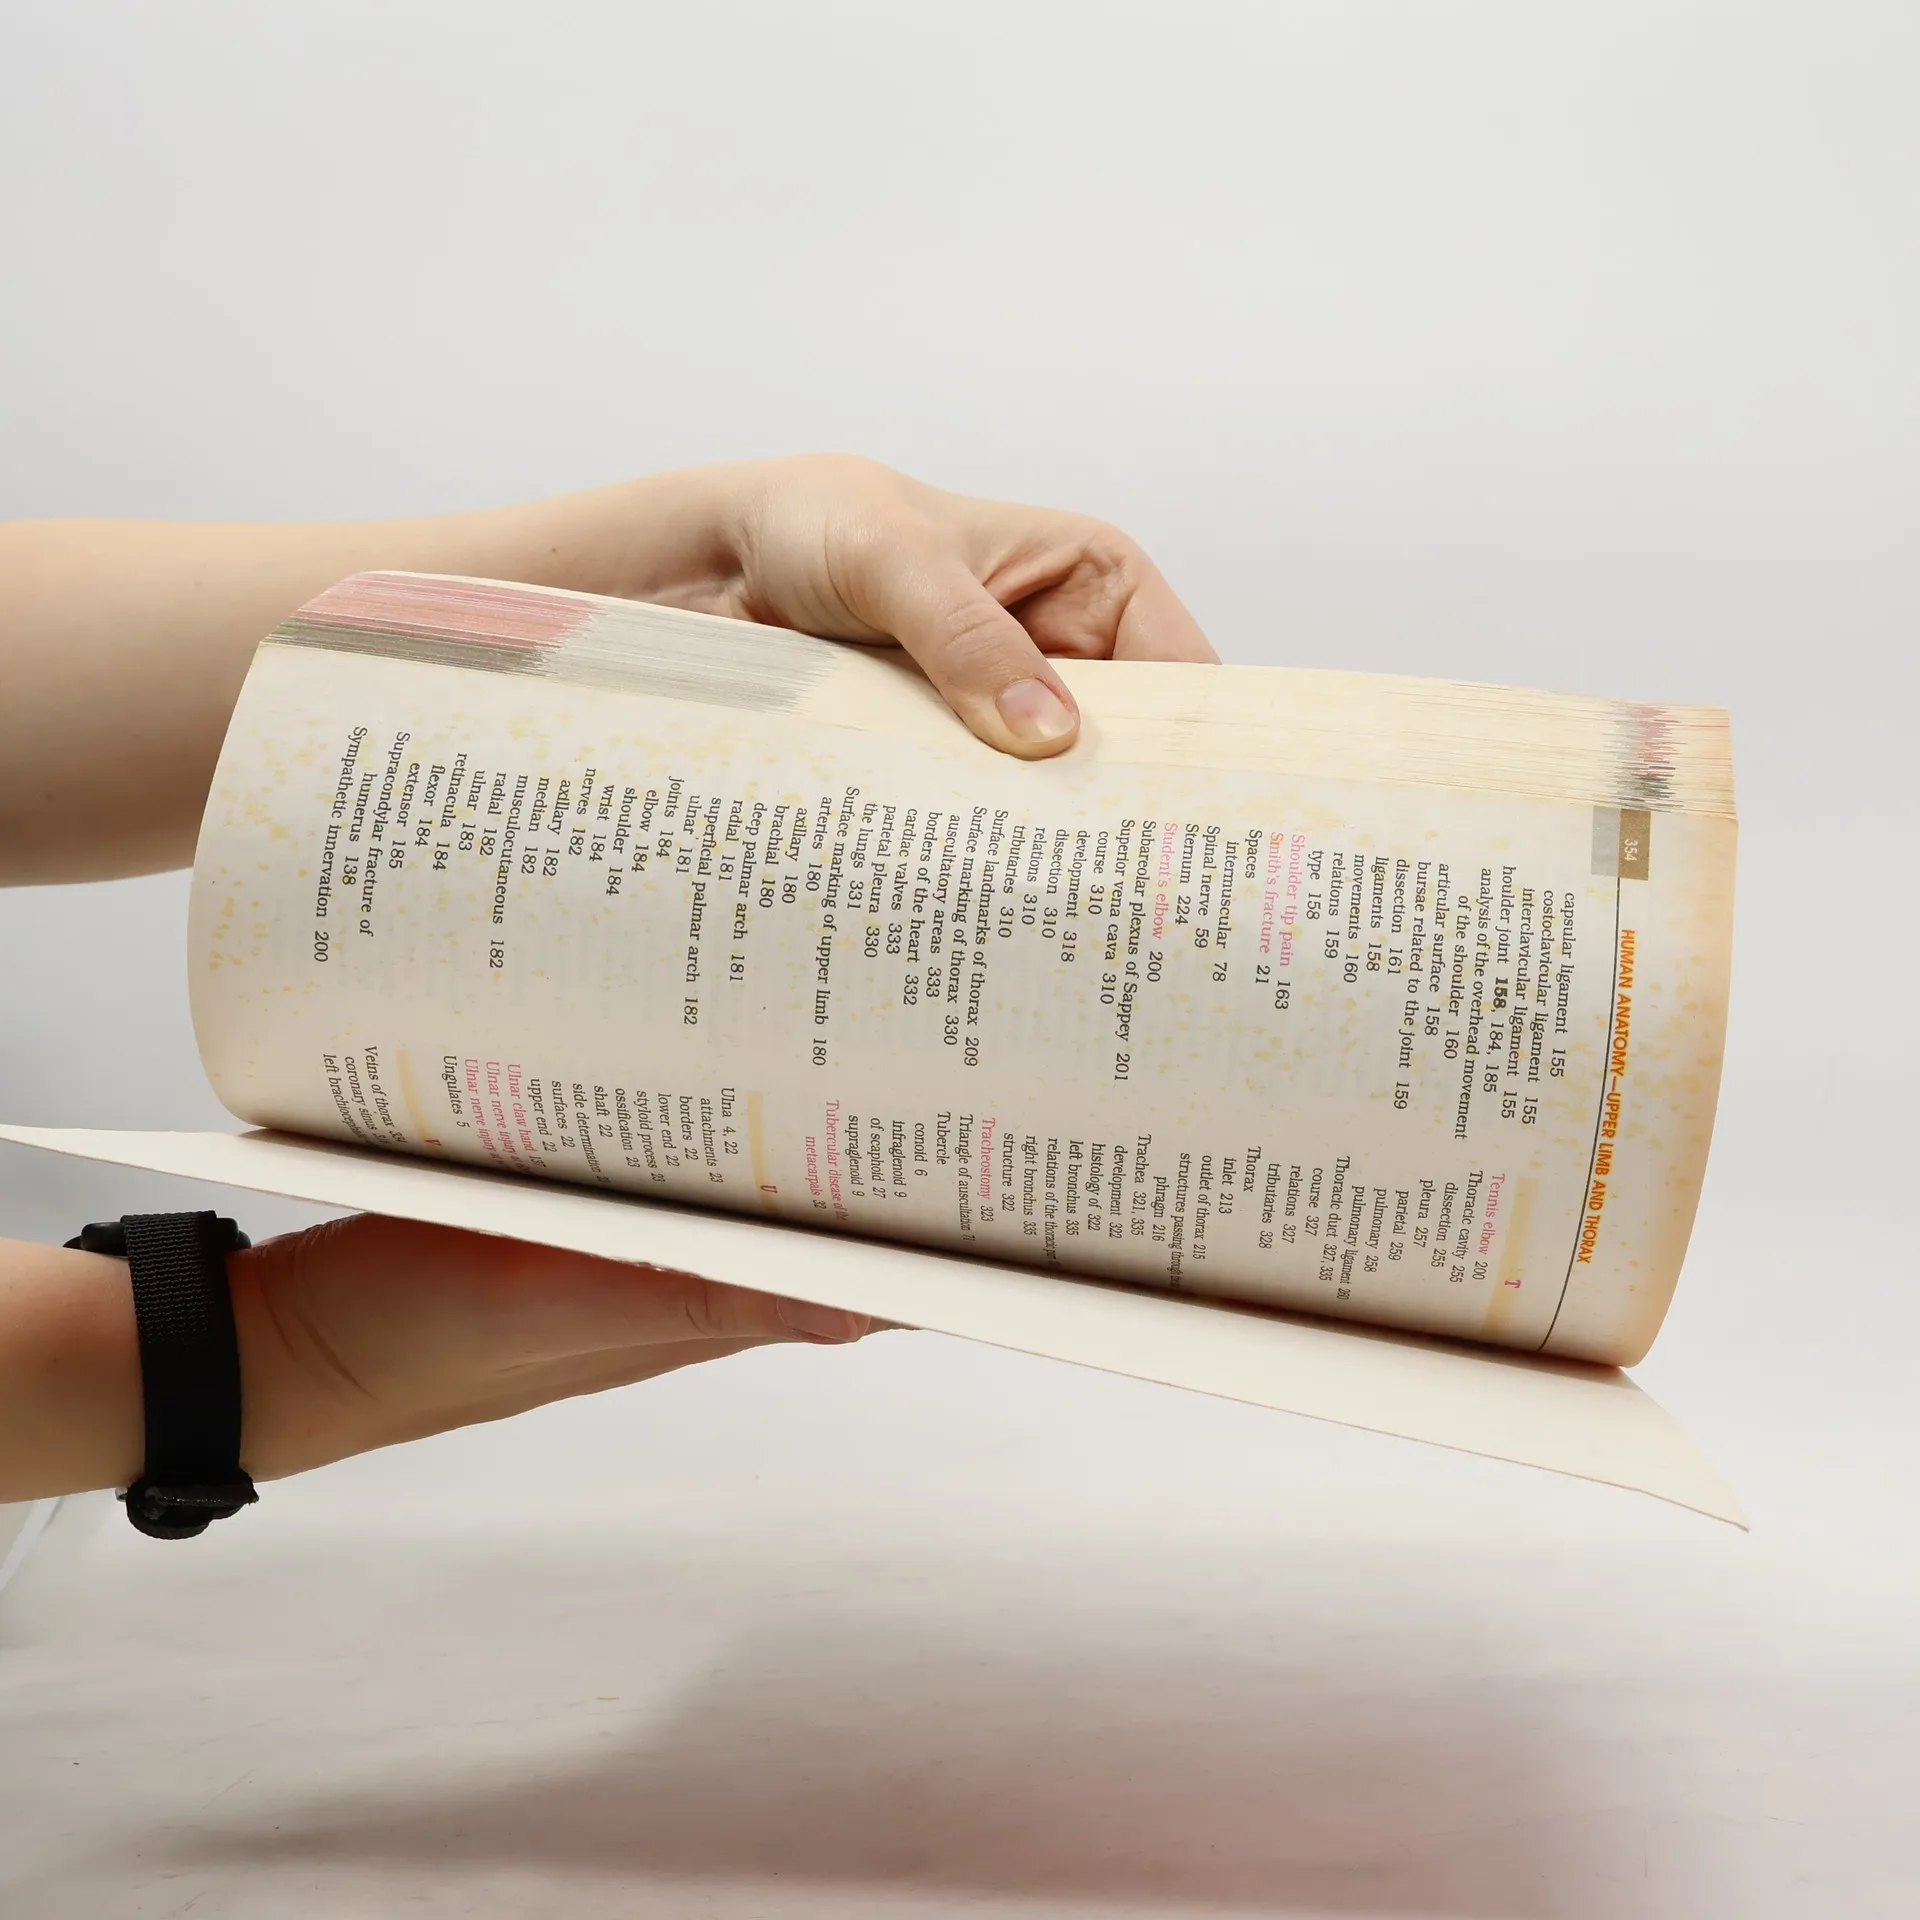 354
HUMAN ANATOMY—UPPER LIMB AND THORAX
capsular ligament 155
costoclavicular ligament 155
interclavicular ligament 155
houlder joint 158, 184, 185
analysis of the overhead movement
of the shoulder 160
articular surface 158
bursae related to the joint 159
dissection 161
ligaments 158
movements 160
relations 159
type 158
Shoulder tip pain 163
Smith's fracture 21
Spaces
intermuscular 78
Spinal nerve 59
Sternum 224
Student's elbow 200
Subareolar plexus of Sappey 201
Superior vena cava 310
course 310
development 318
dissection 310
relations 310
tributaries 310
Surface landmarks of thorax 209
Surface marking of thorax 330
auscultatory areas 333
borders of the heart 332
cardiac valves 333
parietal pleura 330
the lungs 331
Surface marking of upper limb 180
arteries 180
axillary 180
brachial 180
deep palmar arch 181
radial 181
superficial palmar arch 182
ulnar 181
joints 184
elbow 184
shoulder 184
wrist 184
nerves 182
axillary 182
median 182
musculocutaneous 182
radial 182
ulnar 183
retinacula 184
flexor 184
extensor 185
Supracondylar fracture of
humerus 138
Sympathetic innervation 200
T
Tennis elbow 200
Thoracic cavity 255
dissection 255
pleura 257
parietal 259
pulmonary 258
pulmonary ligament 260
Thoracic duct 327, 335
course 327
relations 327
tributaries 328
Thorax
inlet 213
outlet of thorax 215
structures passing through
phragm 216
Trachea 321, 335
development 322
histology of 322
left bronchus 335
relations of the thoracic
right bronchus 335
structure 322
Tracheostomy 323
Triangle of auscultation 71
Tubercle
conoid 6
infraglenoid 9
of scaphoid 27
supraglenoid 9
Tubercular disease of the
metacarpals 32
U
Ulna 4, 22
attachments 23
borders 22
lower end 22
styloid process 23
ossification 23
shaft 22
side determination
surfaces 22
upper end 22
Ulnar claw hand
Ulnar nerve injury at
Ulnar nerve injury at
Ungulates 5
V
Veins of thorax 334
coronary sinus
left brachiocephalic